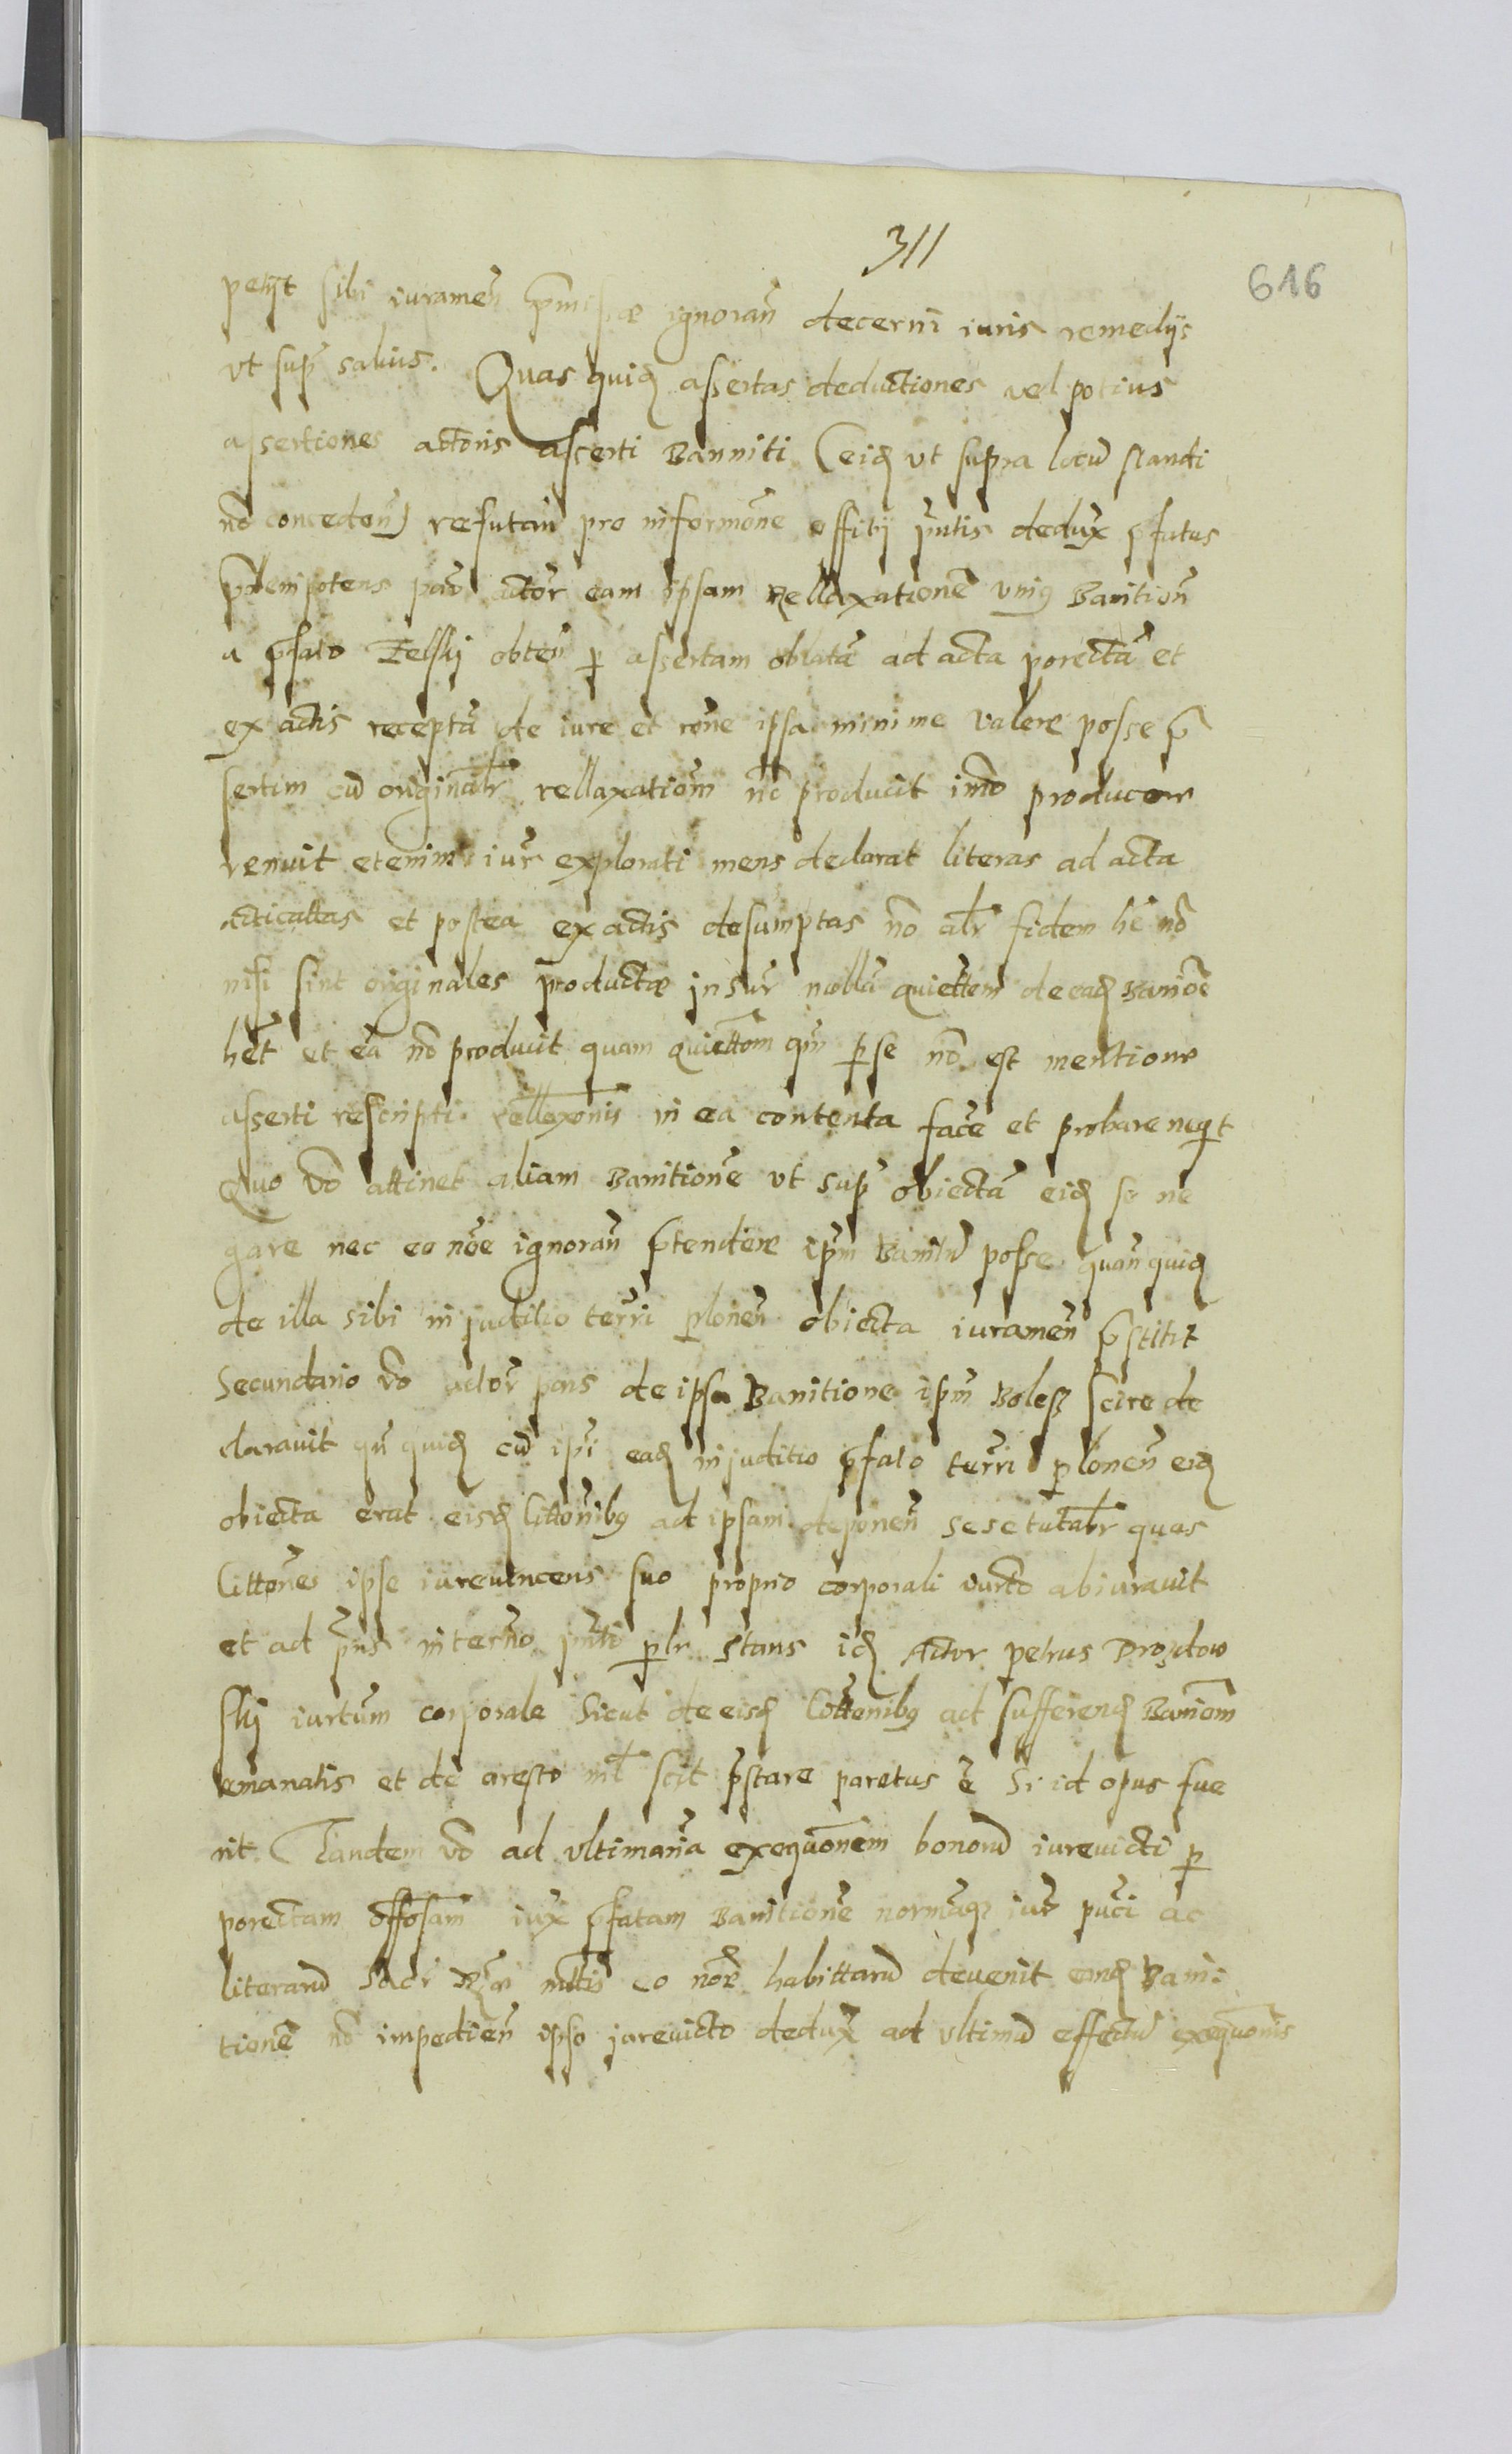 311
616
petyt sibi iuramen̄ ignoran̄ decerni iuris remedijs
vt sup̄ saluis. Quas quid assertas deductiones vel potius
assertiones actoris asserti Banniti (eid vt supra locū standi
nō conceden̄) refutan̄ pro informōne offitij p̄ntis dedux p̄fatus
plenipotens actōr eam ipsam Rellaxationē vnius Banition̄
a p̄fato Zelski obten̄ p assertam oblatā ad acta porectā et
ex actis receptā de iure et rōne ipsa minime valere posse p̄
sertim cū originalr̄ rellaxatiom̄ nō producit imo producere
renuit etenim iur̄ explorati mens declarat literas ad acta
acticattas et postea ex actis desumptas nō alr̄ fidem hr̄e nō
nisi sint originales productæ insur̄ nullā quiettem de ead Baniōe
hēt et eā nō producit quam quiettōm qm̄ p se nō est mentione
asserti rescripti rellaxōnis in ea contenta facē et probare neqt
Quo v̄o attinet aliam Banitionē vt sup̄ obiectā eid se ne
gare nec eo nōe ignoran̄ p̄tendere ip̄m Banitū posse quan̄quid
de illa sibi in juditio terr̄i plonen̄ obiecta iuramen̄ p̄stitit
Secundario v̄o actor̄ pars de ipsa Banitione ip̄m Bolesz scire de
clarauit qn̄ quid cū ip̄i ead in juditio p̄fato terr̄i plonen̄ eid
obiecta erat eisd littōnibus ad ipsam deponen̄ sese tutabr̄ quas
littōnes ipse iureuincens suo proprio corporali iurto abiurauit
et ad p̄ns in termo p̄nti plr stans id Actor petrus Drozdow
skj iurtum corporale sicut de eisd littōnibus ad sufferend Baniōem
emanatis et de aresto nil scit p̄stare paratus ē Si id opus fue
rit. Tandem v̄o ad vltimariā exequōnem bonorū iureuicti p
porectam offosam̄ iux p̄fatam Banitionē normāqs iur̄ puci ac
literarū sacr̄ eo nōe habittarū devenit eand Bani:
tionē nō impedien̄ ipso jureuicto dedux ad vltimū effectū exequōnis